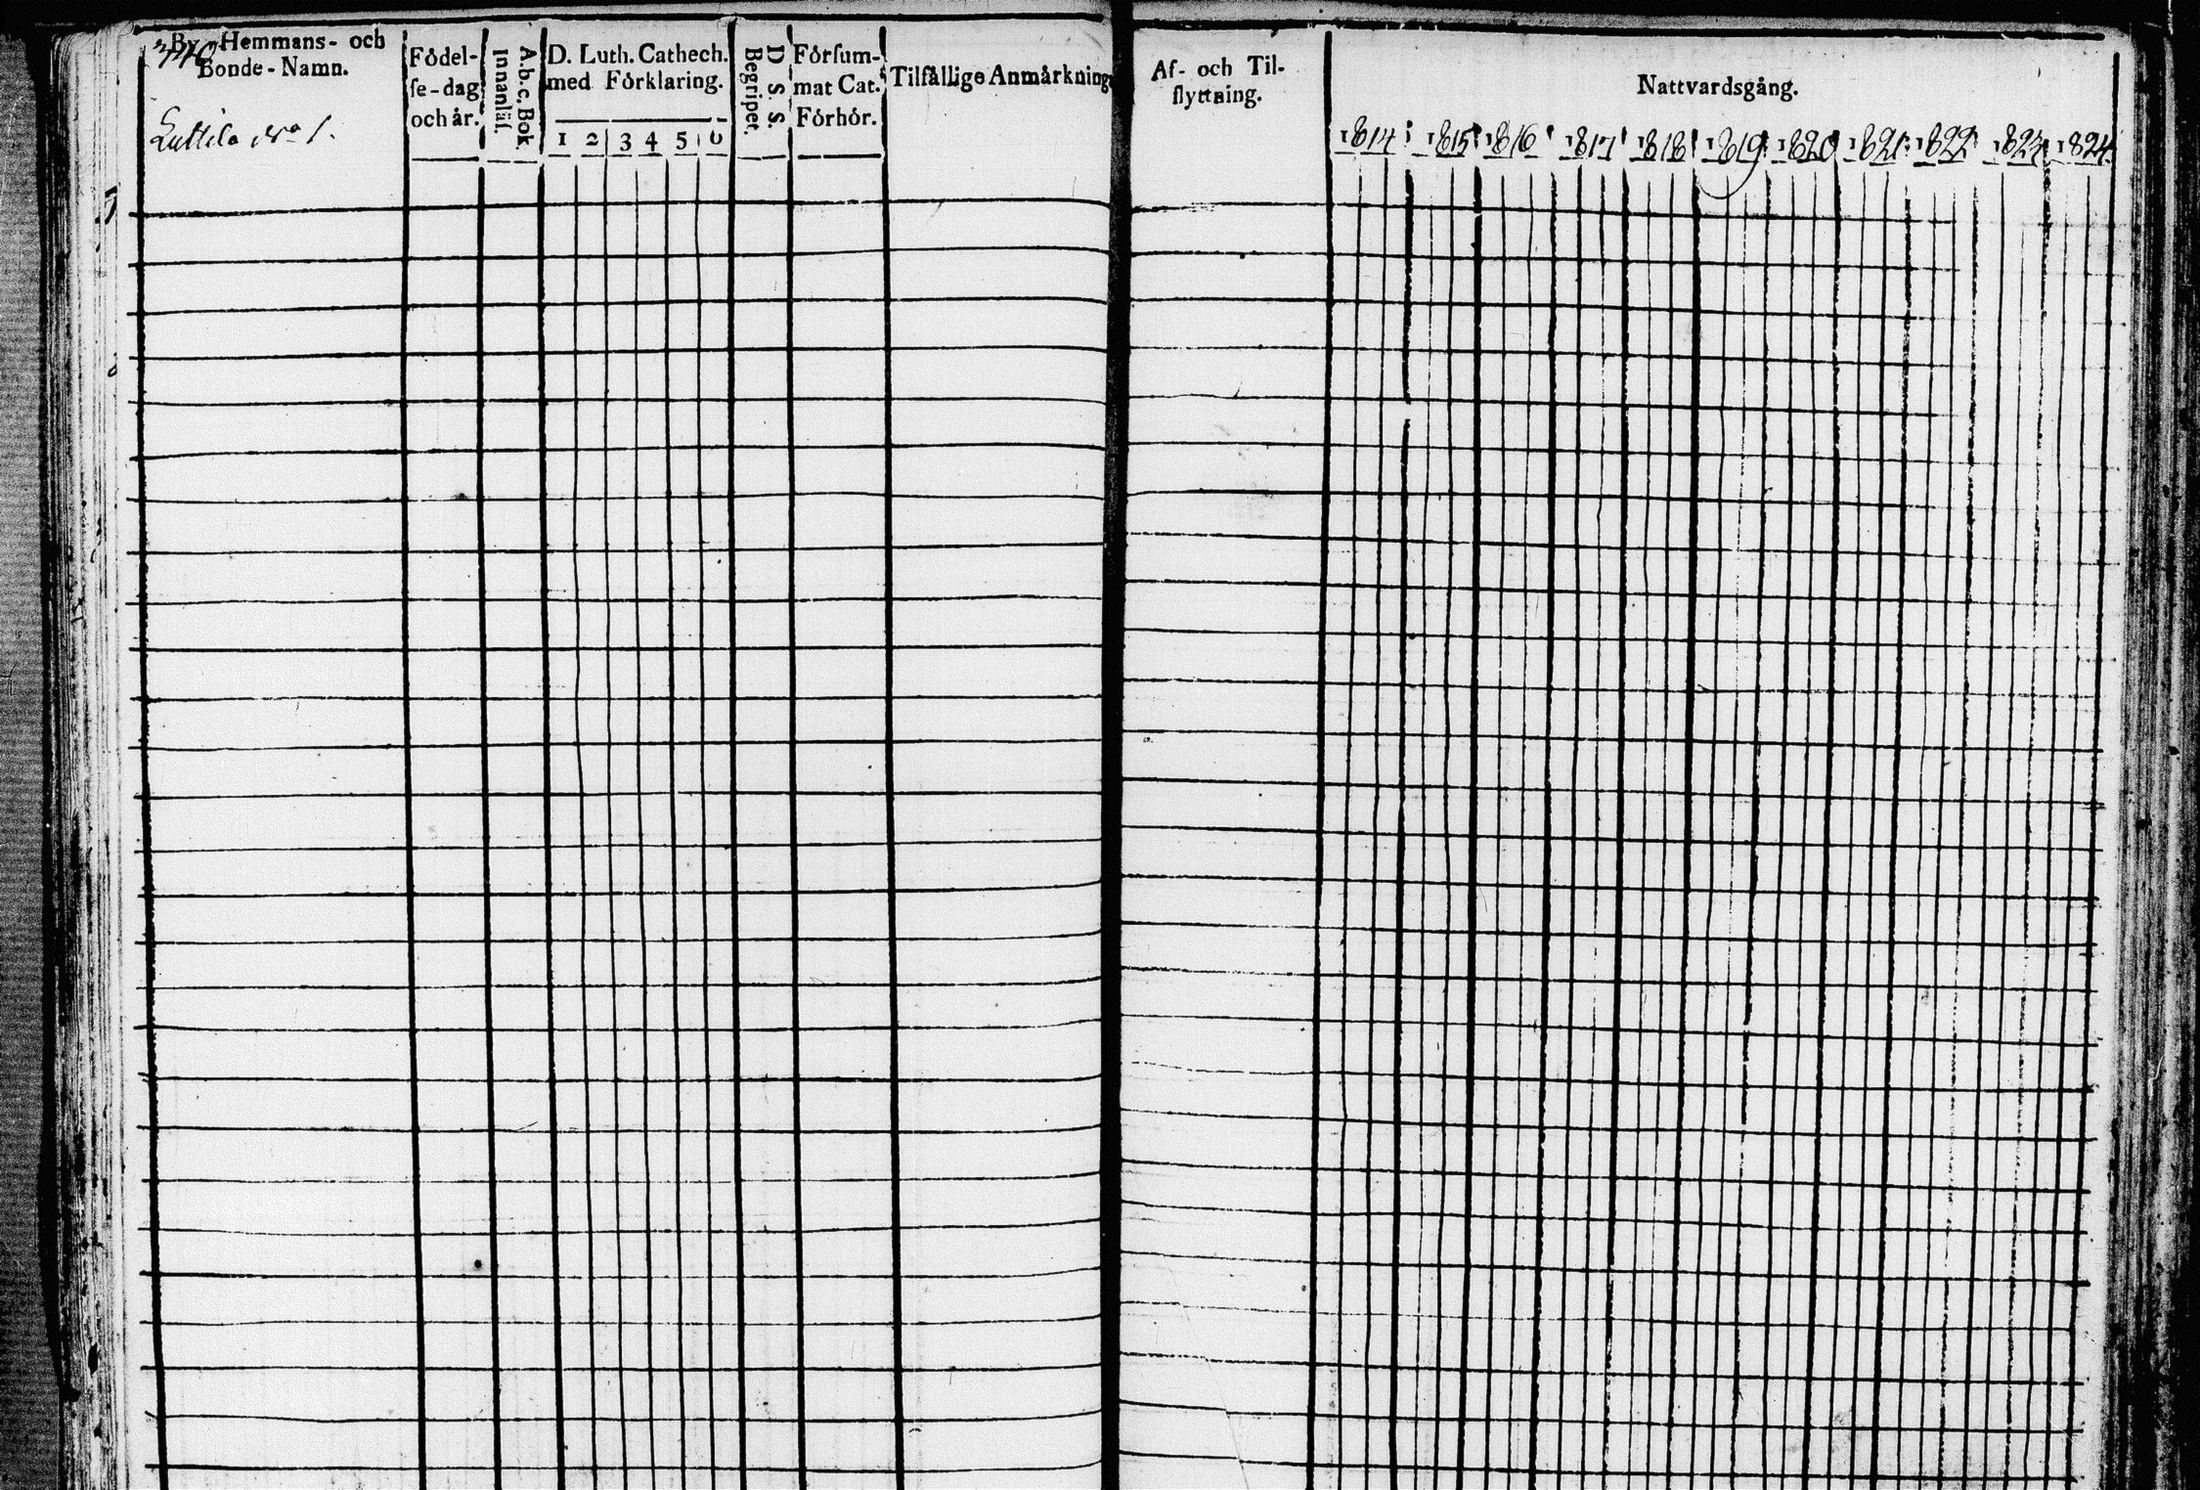 340
By- Hemmans- och
Bonde-Namn.
Födel-
se-dag
och år.
A.b.c. Bok
Innanläs.
D. Luth. Cathech.
med Förklaring.
1 2 3 4 5 6
D. S. S.
Begripet.
Försum-
mat Cat.
Förhör.
Tilfällige Anmärkning
Af- och Til-
flyttning.
Nattvardsgång.
1814 1815 1816 1817 1818 1819 1820 1821 1822 1823 1824
No 1.